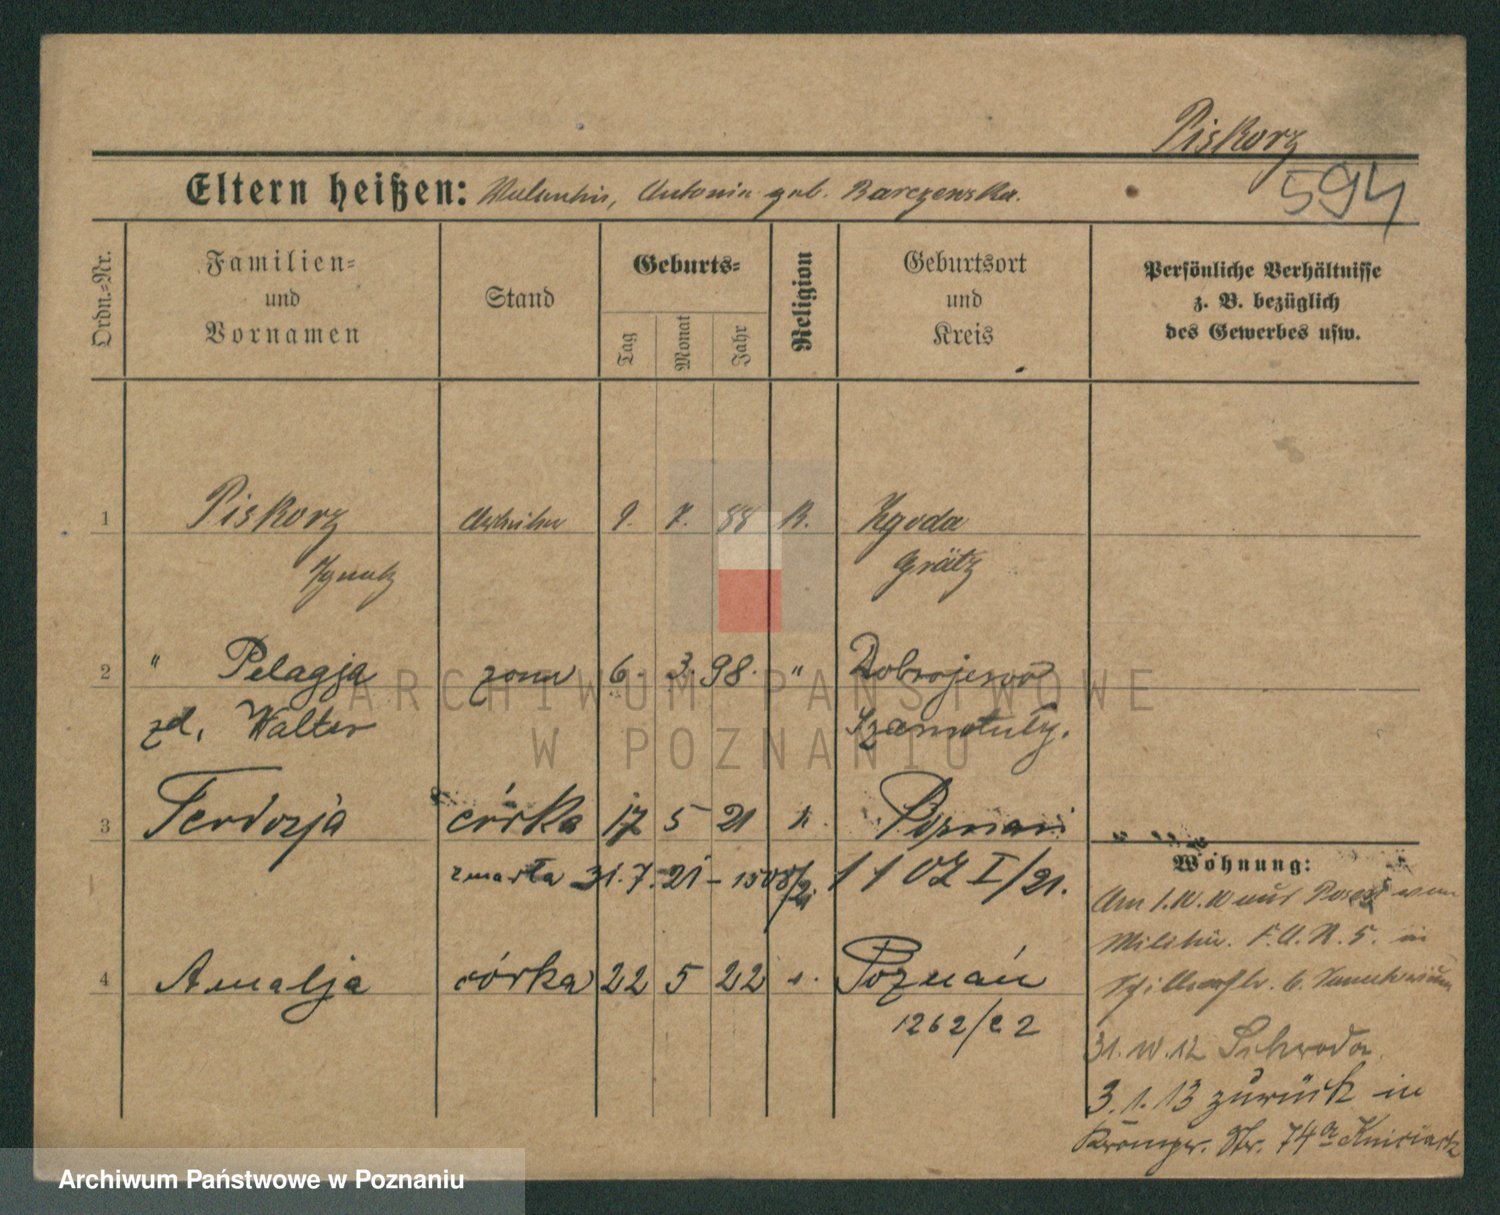 Piskorz
594
Eltern heißen: Valentin, Antonie geb. Barczewska.
Ordn.=Nr.
Familien=
und
Vornamen
Stand
Geburts=
Tag
Monat
Jahr
Religion
Geburtsort
und
Kreis
Persönliche Verhältnisse
z. B. bezüglich
des Gewerbes usw.
1 Piskorz Arbeiter 9. 7. 88 K. Zgoda
Ignatz Grätz
2 " Pelagja żona 6. 3. 98. " Dobrojewo
zd. Walter Szamotuły.
3 Teodozja córka 17 5 21 k. Poznań
zmarła 31.7.21 - 1508/21 1107 I/21.
4 Amalja córka 22 5 22 Poznań
1262/22
Wohnung:
Am 1.10. aus vom
Militär. F.A.R. 5. in
6.
31.10.12 Schroda.
3.1.13 zurück in
Str. 74a
ARCHIWUM PAŃSTWOWE
W POZNANIU
Archiwum Państwowe w Poznaniu